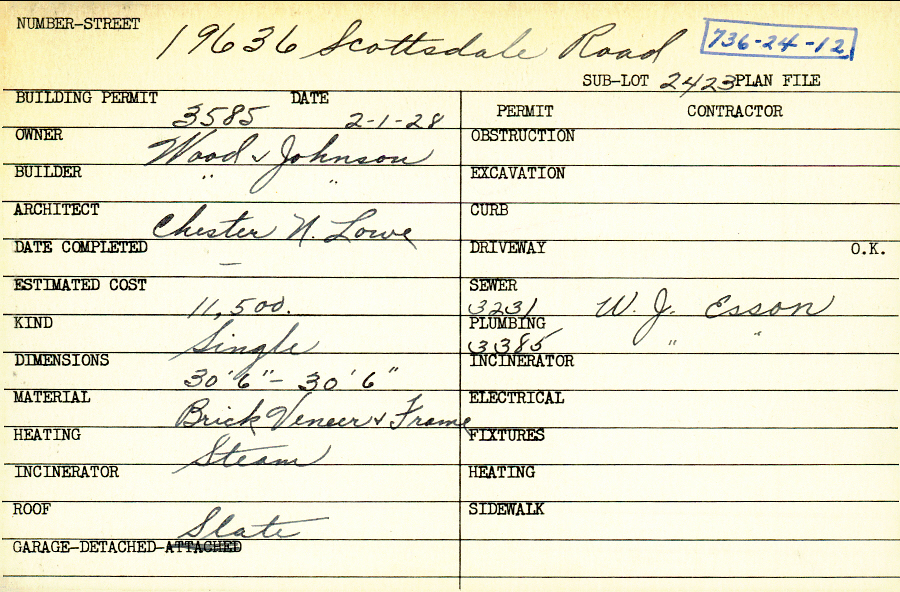 NUMBER-STREET 19636 Scottsdale Road 736-24-12
SUB-LOT 2423 PLAN FILE
BUILDING PERMIT 3585 DATE 2-1-28
OWNER Wood & Johnson
BUILDER " "
ARCHITECT Chester N. Lowe
DATE COMPLETED —
ESTIMATED COST 11,500.
KIND Single
DIMENSIONS 30'6" - 30'6"
MATERIAL Brick Veneer & Frame
HEATING Steam
INCINERATOR
ROOF Slate
GARAGE-DETACHED-ATTACHED
PERMIT CONTRACTOR
OBSTRUCTION
EXCAVATION
CURB
DRIVEWAY O.K.
SEWER 3231 W. J. Esson
PLUMBING 3385 " "
INCINERATOR
ELECTRICAL
FIXTURES
HEATING
SIDEWALK